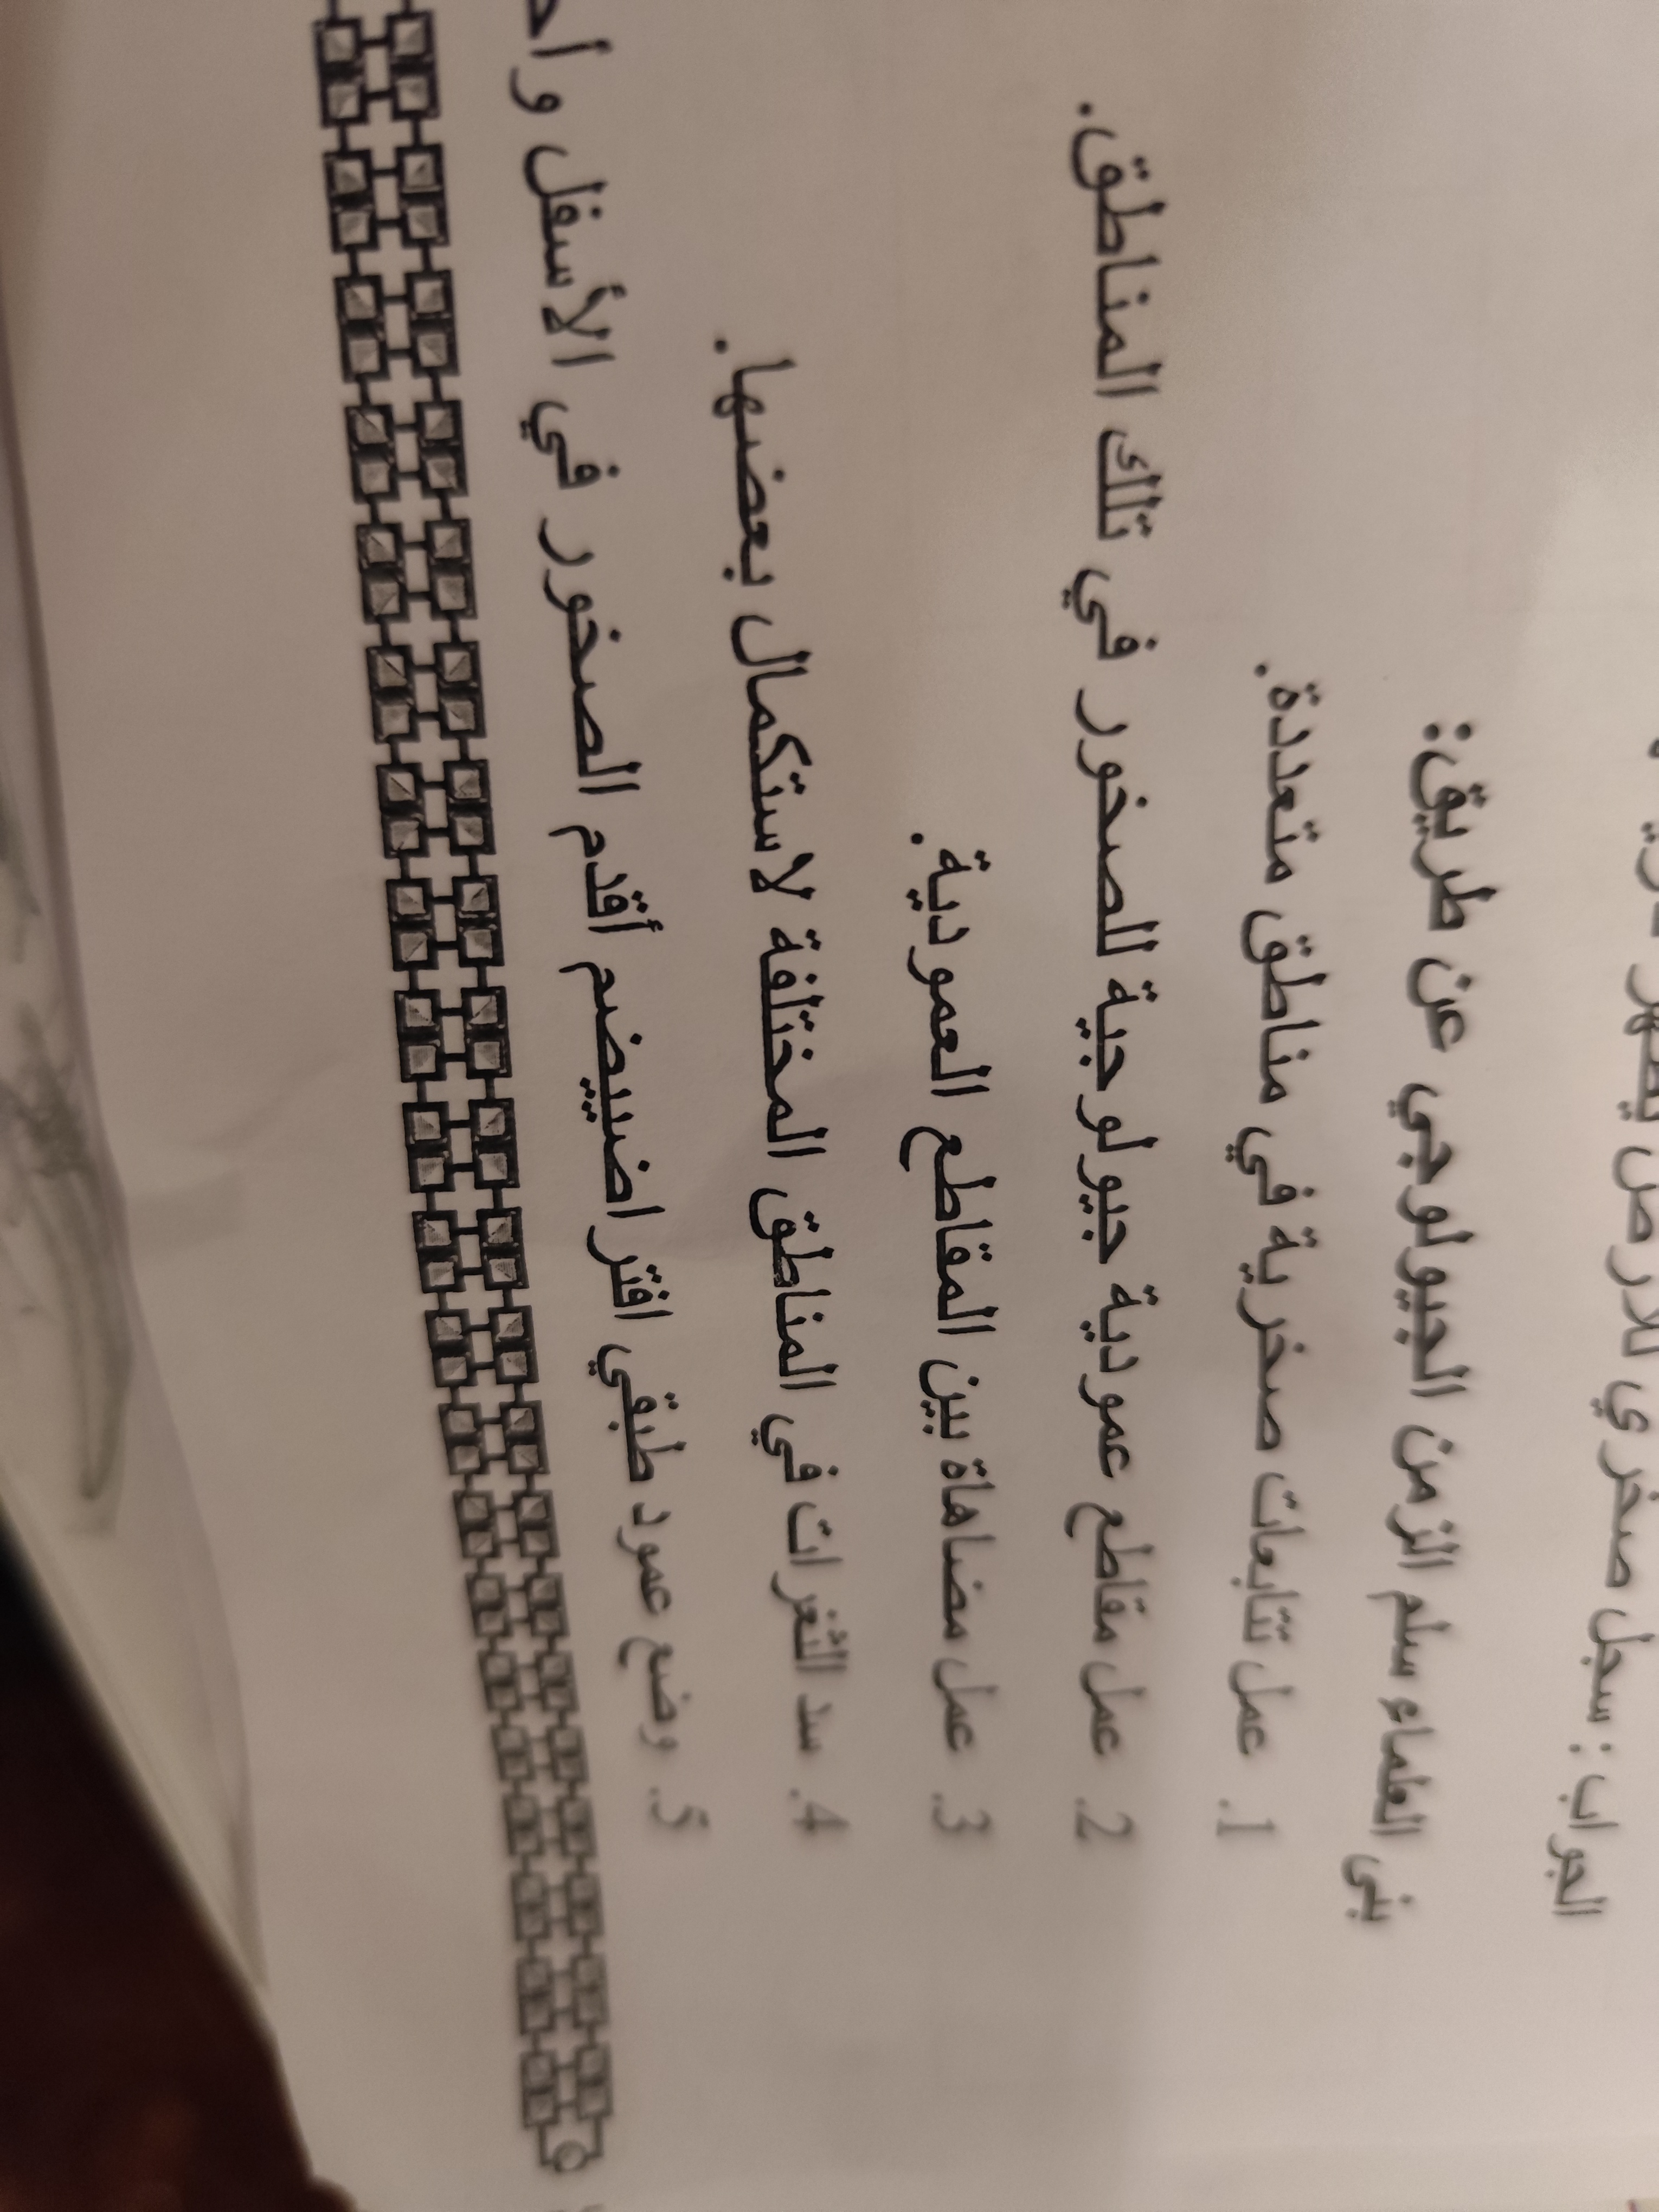 الجواب: سجل صخري للأرض يظهر
بنى العلماء سلم الزمن الجيولوجي عن طريق:
1. عمل تتابعات صخرية في مناطق متعددة.
2. عمل مقاطع عمودية جيولوجية للصخور في تلك المناطق.
3. عمل مضاهاة بين المقاطع العمودية.
4. سد الثغرات في المناطق المختلفة لاستكمال بعضها.
5. وضع عمود طبقي افتراضييضم أقدم الصخور في الأسفل و